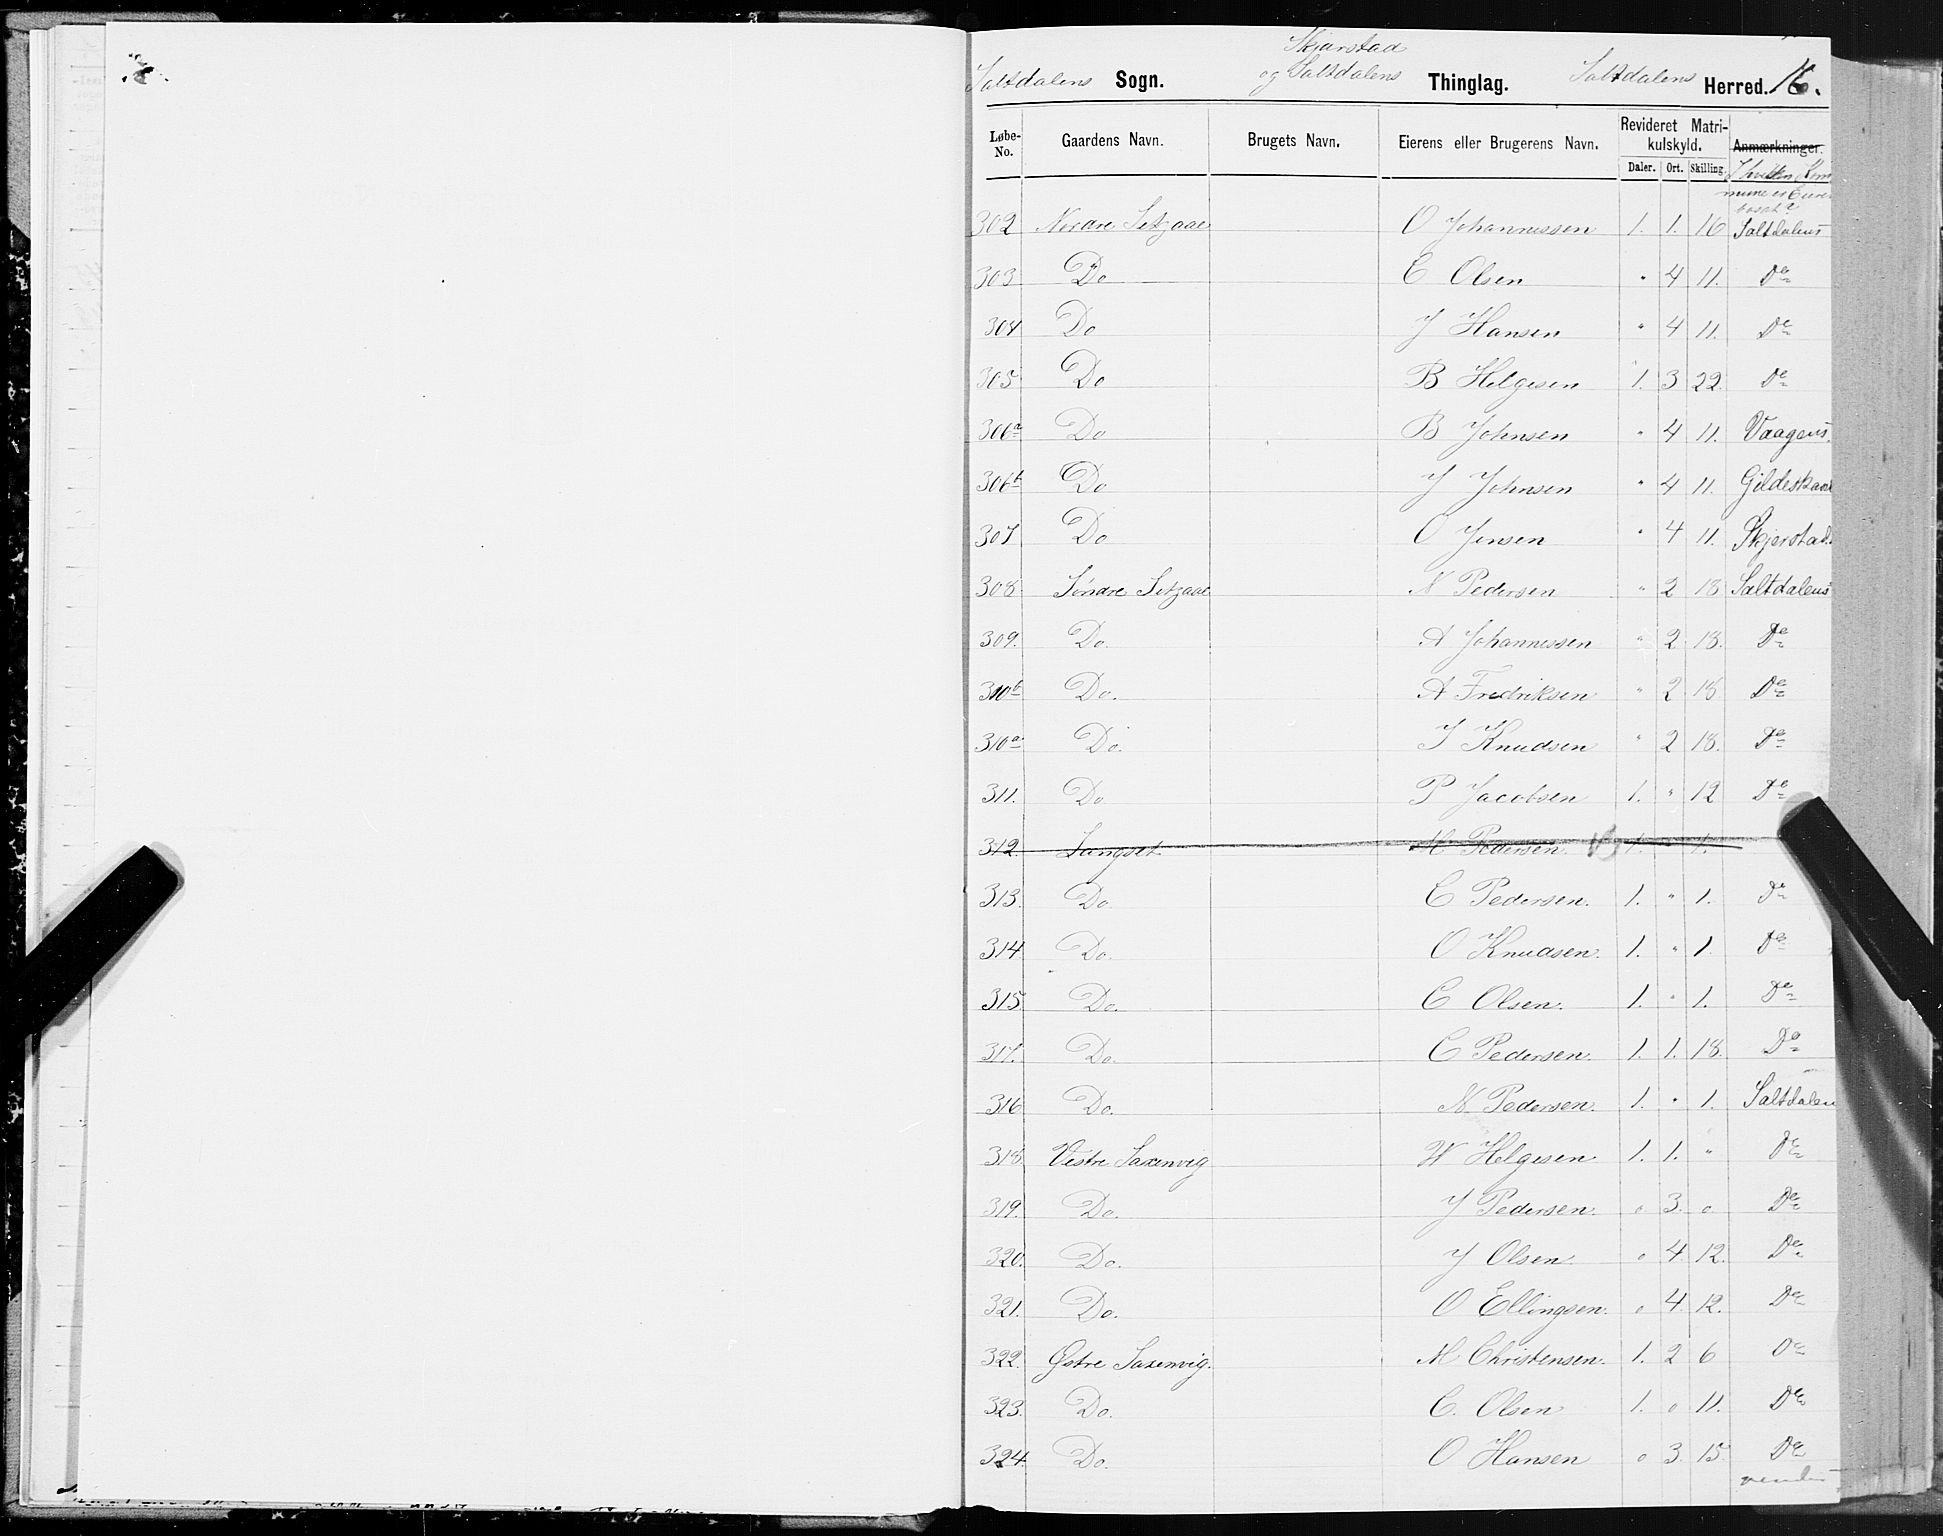 Skjærstad
Saltdalens Sogn. og Saltdalens Thinglag. Saltdalens Herred. 16.
Løbe-No. Gaardens Navn. Brugets Navn. Eierens eller Brugerens Navn. Revideret Matrikulskyld. Anmærkninger.
Daler. Ort. Skilling. I hvilken Kom
mune er Eieren
bosat?
302 Nordre Setzaae O Johannessen 1. 1. 16 Saltdalens
303 Do C Olsen " 4 11. Do
304 Do J Hansen " 4 11. Do
305 Do B Helgesen 1. 3 22. Do
306a Do B Johnsen " 4 11. Vaagens.
306b Do J Johnsen " 4 11. Gildeskaal
307 Do O Jensen " 4 11. Skjerstad.
308 Søndre Setzaae N Pedersen " 2 18 Saltdalens
309. Do. A Johannessen " 2 18. Do
310b Do. A Fredriksen " 2 18 Do
310a Do. J Knudsen " 2 18. Do
311. Do P Jacobsen 1. " 12 Do
312. Langset M Pedersen 1. " 1.
313. Do C Pedersen. 1. " 1. Do
314 Do. O Knudsen. 1. " 1 Do
315 Do. C Olsen. 1. " 1. Do
317. Do. C Pedersen. 1. 1. 18. Do
316 Do. N. Pedersen. 1. " 1. Saltdalen
318 Vestre Saxenvig W Helgesen 1. 1. " Do
319. Do. J Pedersen. " 3. " Do
320. Do. J Olsen. " 4. 12. Do
321. Do. O Ellingsen. " 4. 12. Do
322. Østre Saxenvig. M Christensen. 1. 2 6 Do
323. Do. C. Olsen 1. " 11. Do
324. Do. O Hansen " 3. 15. Do